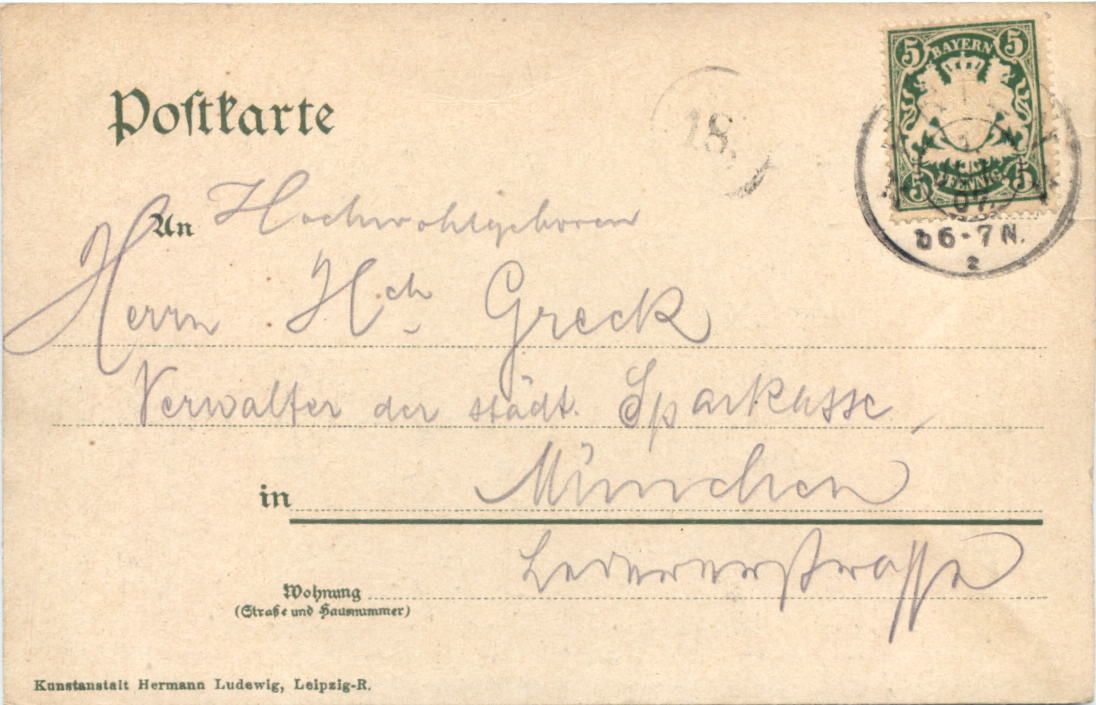 5 BAYERN 5
5 PFENNIG 5
18.
Postkarte
07.
6-7 N.
2
An Hochwohlgeboren
Herrn Hch Greck
Verwalter der städt. Sparkasse,
in München
Ledererstrasse
Wohnung
(Straße und Hausnummer)
Kunstanstalt Hermann Ludewig, Leipzig-R.